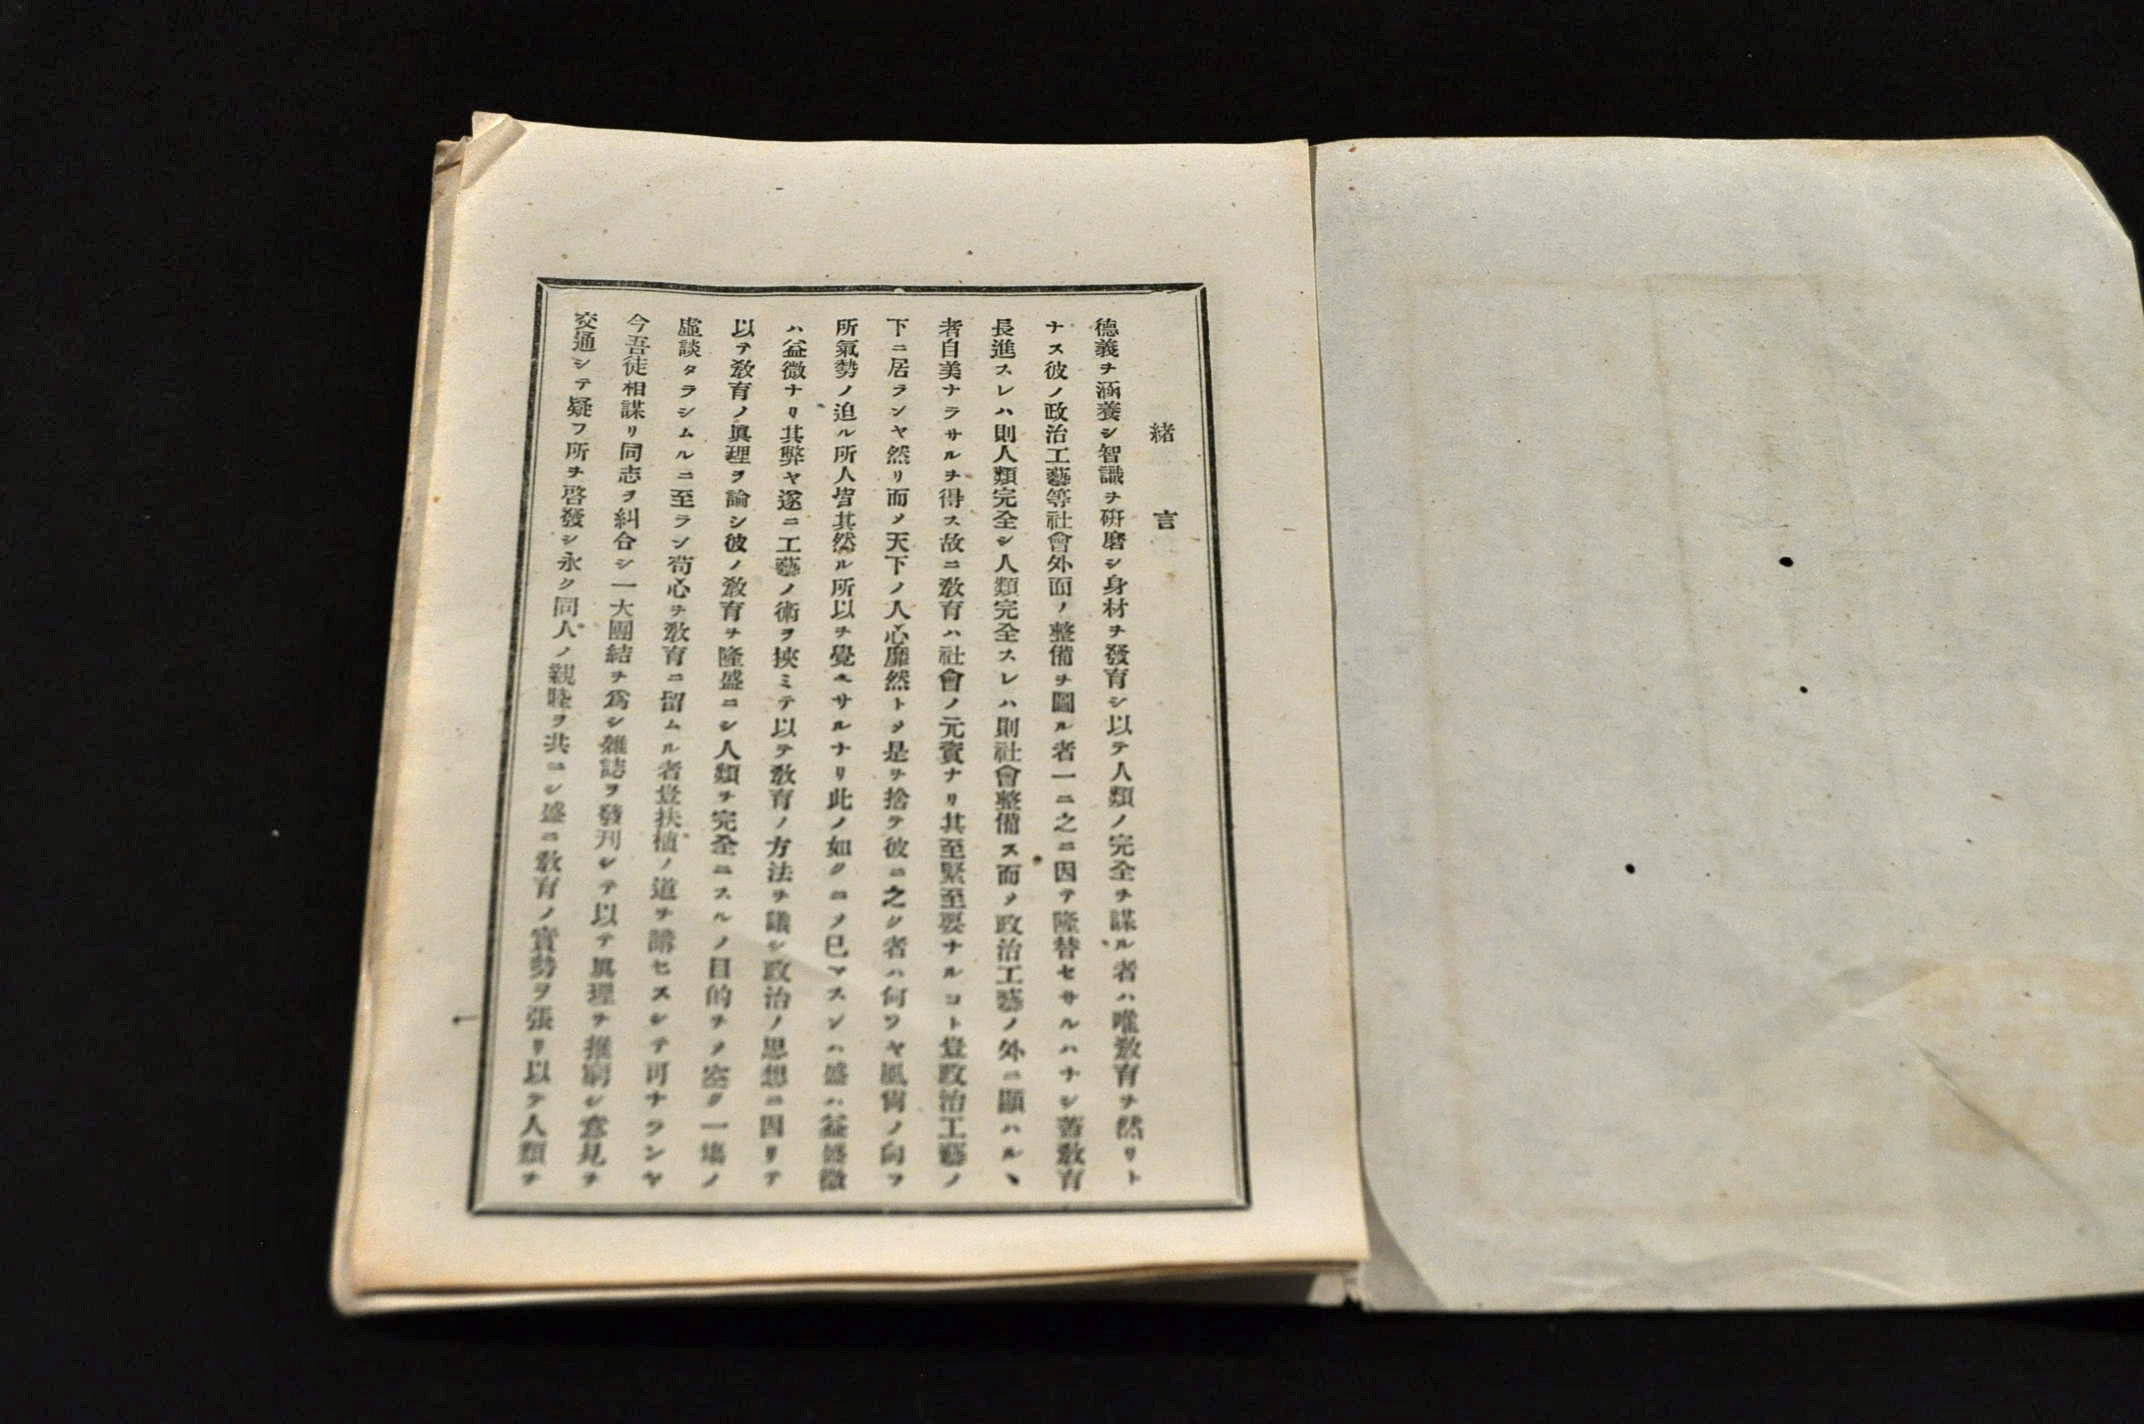 緒言
德義ヲ涵養シ智識ヲ硏磨シ身材ヲ發育シ以テ人類ノ完全ヲ謀ル者ハ唯敎育ヲ然リト
ナス彼ノ政治工藝等社會外面ノ整備ヲ圖ル者一ニ之ニ因テ隆替セサルハナシ蓋敎育
長進スレハ則人類完全シ人類完全スレハ則社會整備ス而〆政治工藝ノ外ニ顯ハルヽ
者自美ナラサルヲ得ス故ニ敎育ハ社會ノ元資ナリ其至緊至要ナルコト豈政治工藝ノ
下ニ居ランヤ然リ而〆天下ノ人心靡然ト〆是ヲ捨テ彼ニ之ク者ハ何ソヤ風尙ノ向フ
所氣勢ノ迫ル所人皆其然ル所以ヲ覺エサルナリ此ノ如クニ〆已マスンハ盛ハ益盛微
ハ益微ナリ其弊ヤ遂ニ工藝ノ術ヲ挾ミテ以テ敎育ノ方法ヲ議シ政治ノ思想ニ因リテ
以テ敎育ノ眞理ヲ論シ彼ノ敎育ヲ隆盛ニシ人類ヲ完全ニスルノ目的ヲ〆空ク一塲ノ
虛談タラシムルニ至ラン苟心ヲ敎育ニ留ムル者豈扶植ノ道ヲ講セスシテ可ナランヤ
今吾徒相謀リ同志ヲ糾合シ一大團結ヲ爲シ雜誌ヲ發刊シテ以テ眞理ヲ推窮シ意見ヲ
交通シテ疑フ所ヲ啓發シ永ク同人ノ親睦ヲ共ニシ盛ニ敎育ノ實勢ヲ張リ以テ人類ヲ